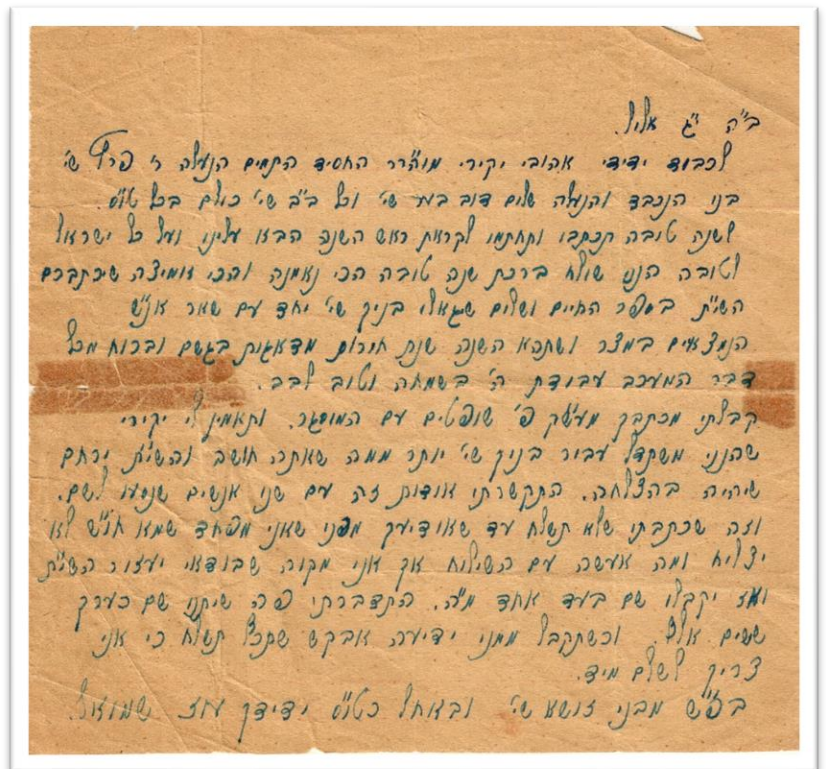 ב"ה י"ג אלול.
לכבוד ידידי אהובי יקירי מוה"רר החסיד התמים הנעלה ר' פרץ שי'
בנו הנכבד והנעלה שלום דוב בער שי' וכל ב"ב שי' כולם בכל טו"ס.
לשנה טובה תכתבו ותחתמו לקראת ראש השנה הבא עלינו ועל כל ישראל
לטובה הנני שולח ברכת שנה טובה הכי נאמנה והכי אומיצה שיכתבכם
השי"ת בספר החיים ושלום שגאולי בניך שי' יחד עם שאר אנ"ש
הנמצאים במצר ושתהא השנה שנת חירות מדאגות בגשם וברוח מכל
דבר המעכב עבודת ה' בשמחה וטוב לבב.
קבלתי מכתבך מעש"ק פ' שופטים עם המוסגר. ותאמין לי יקירי
שהנני משתדל עבור בניך שי' יותר ממה שאתה חושב והשי"ת ירחם
שיהיה בהצלחה. התקשרתי אודות זה עם שני אנשים שנסעו לשם.
וזה שכתבתי שלא תשלח עד שאודיעך מפני שאני מפחד שמא חו"ש לא
יצליח ומה אעשה עם השילוח אך אני מקוה שבודאי יעזור השי"ת
ואז יקבלו שם בעד אחד מ"ה. התדברתי פה שיתנו שם כערך
ששים אלף. וכשתקבל ממני ידיעה אבקש שתכף תשלח כי אני
צריך לשלם מיד.
בפ"ש מבני זושא שי' ובאיחל כטו"ס ידידך עוז שמואל